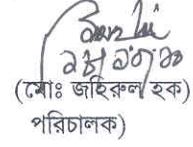 (মোঃ জহিরুল হক)
পরিচালক)